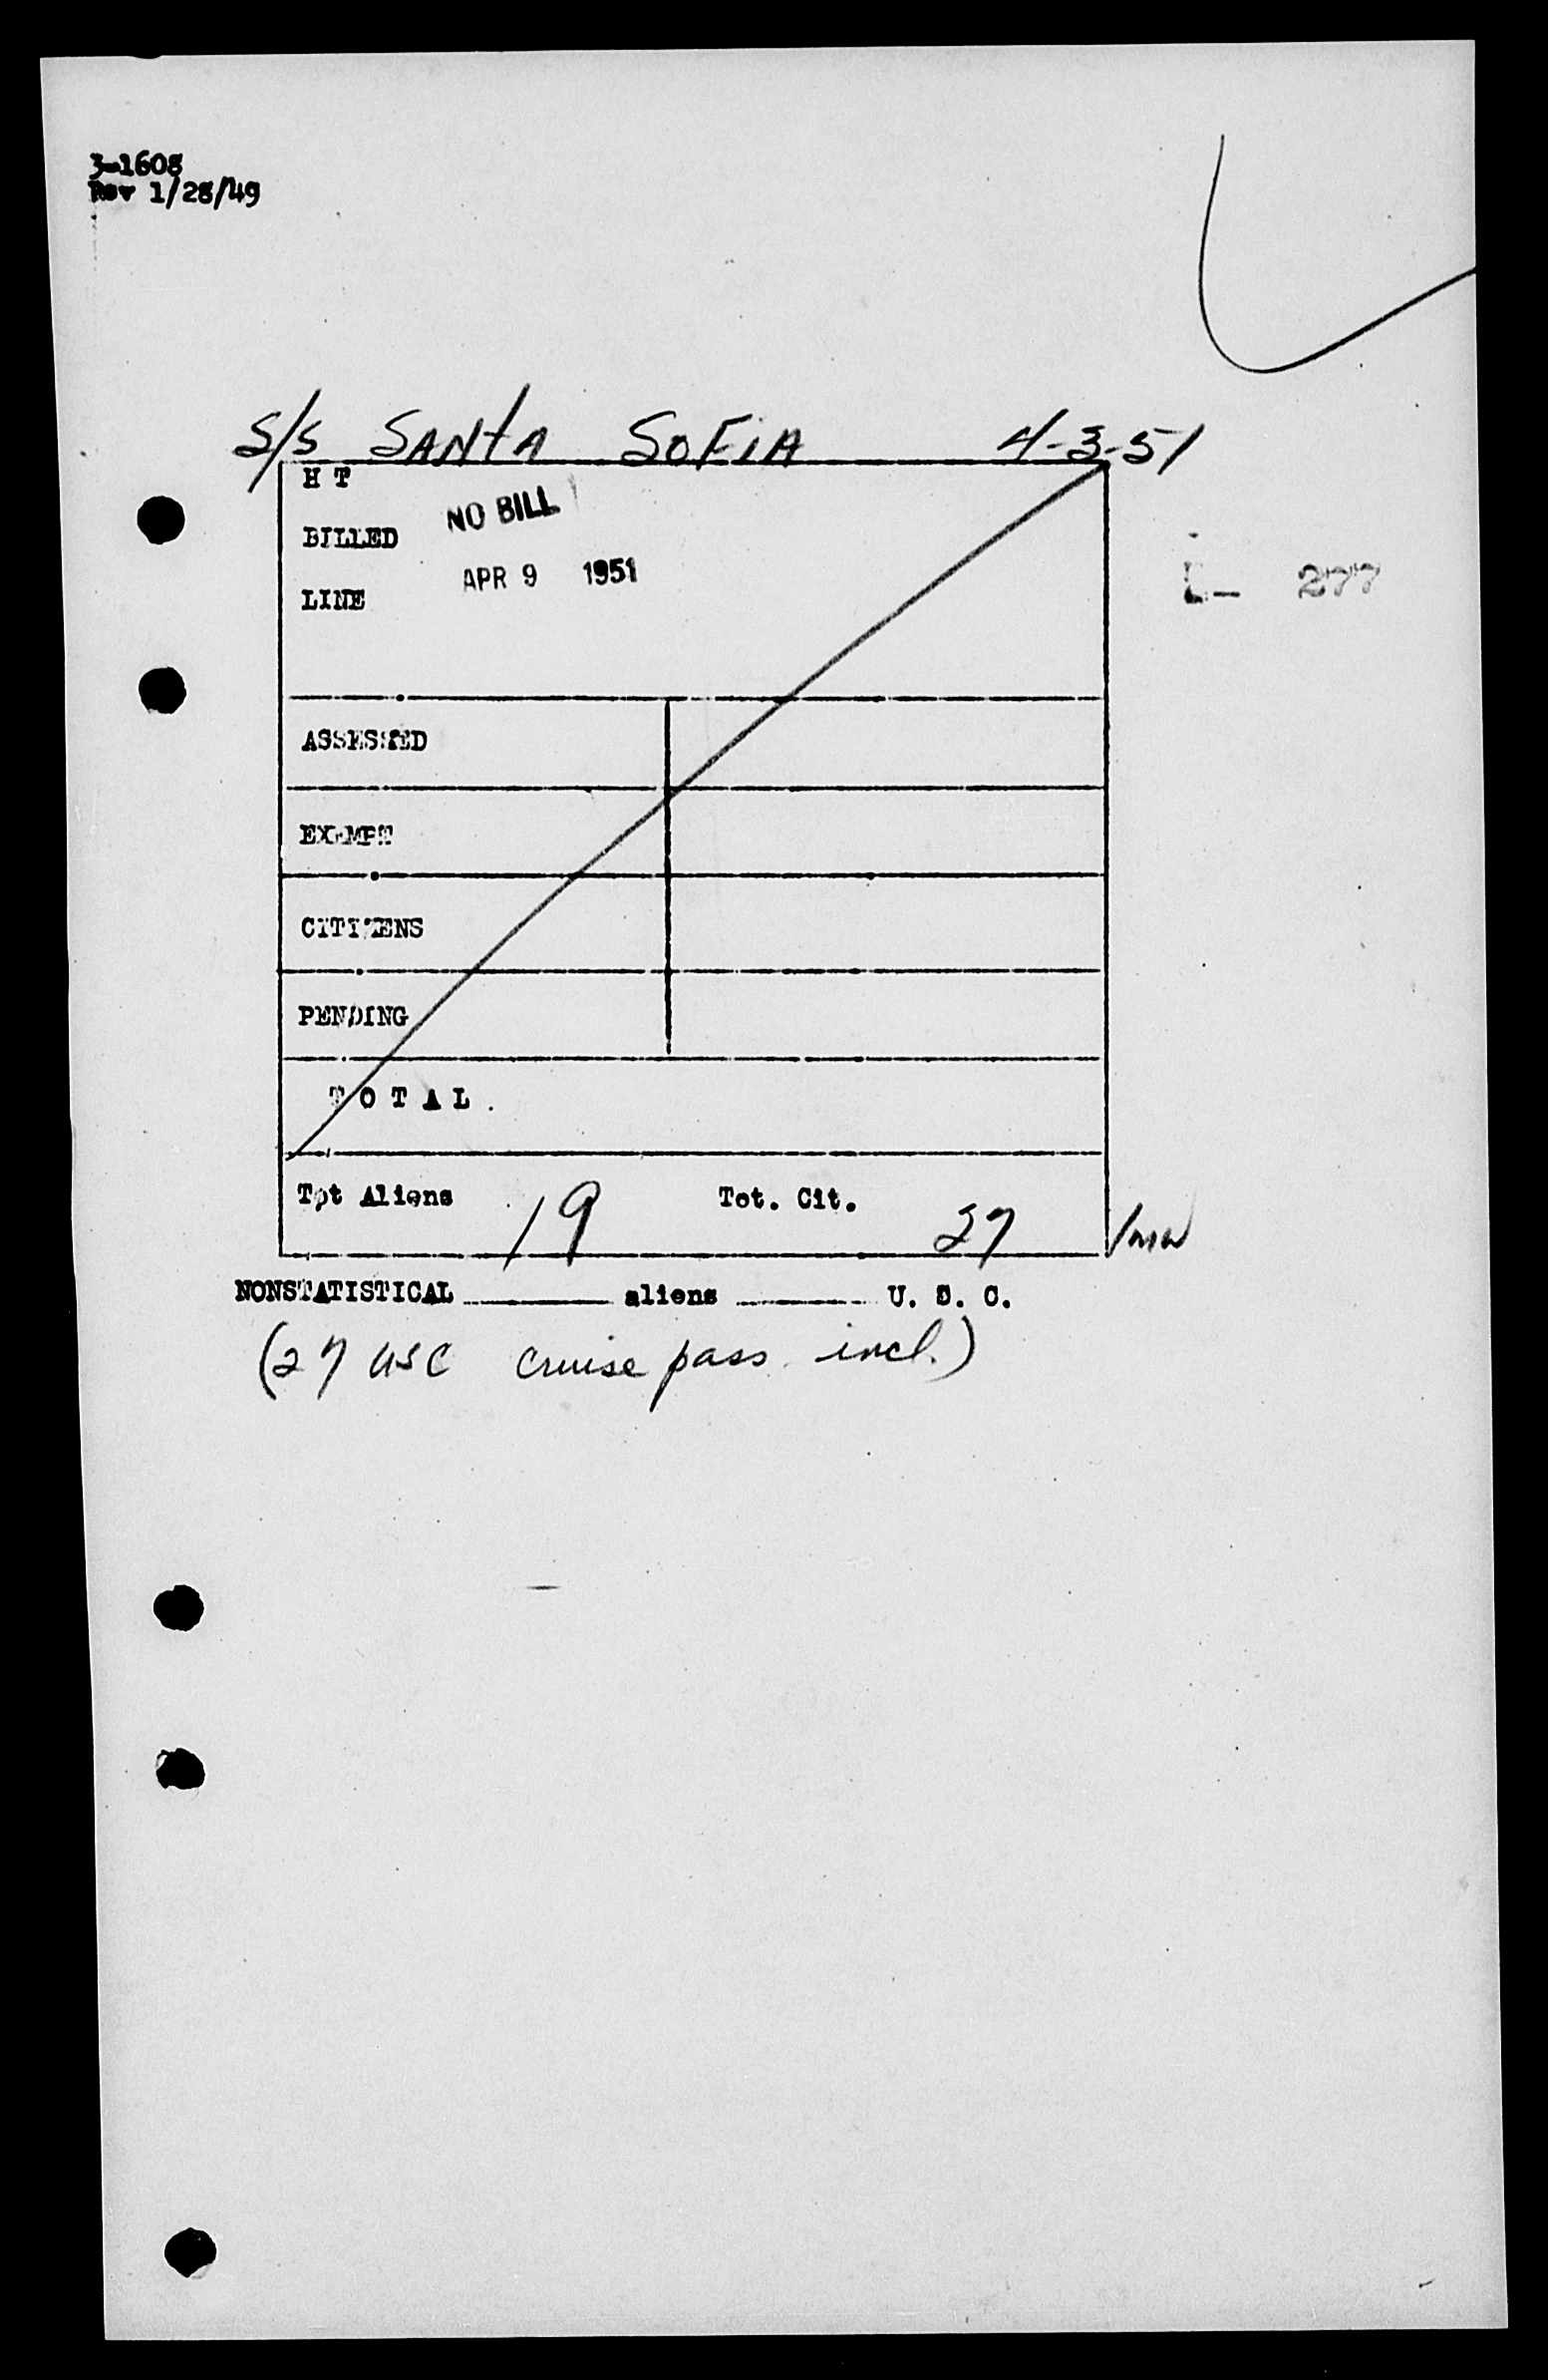 3-1608
Rev 1/28/49
S/S SANTA SOFIA 4-3-51
H T
NO BILL
BILLED
APR 9 1951
LINE
277
ASSESSED
EXEMPT
CITIZENS
PENDING
T O T A L .
Tot Aliens 19 Tot. Cit. 27
NONSTATISTICAL aliens U. S. C.
(27 USC cruise pass. incl.)